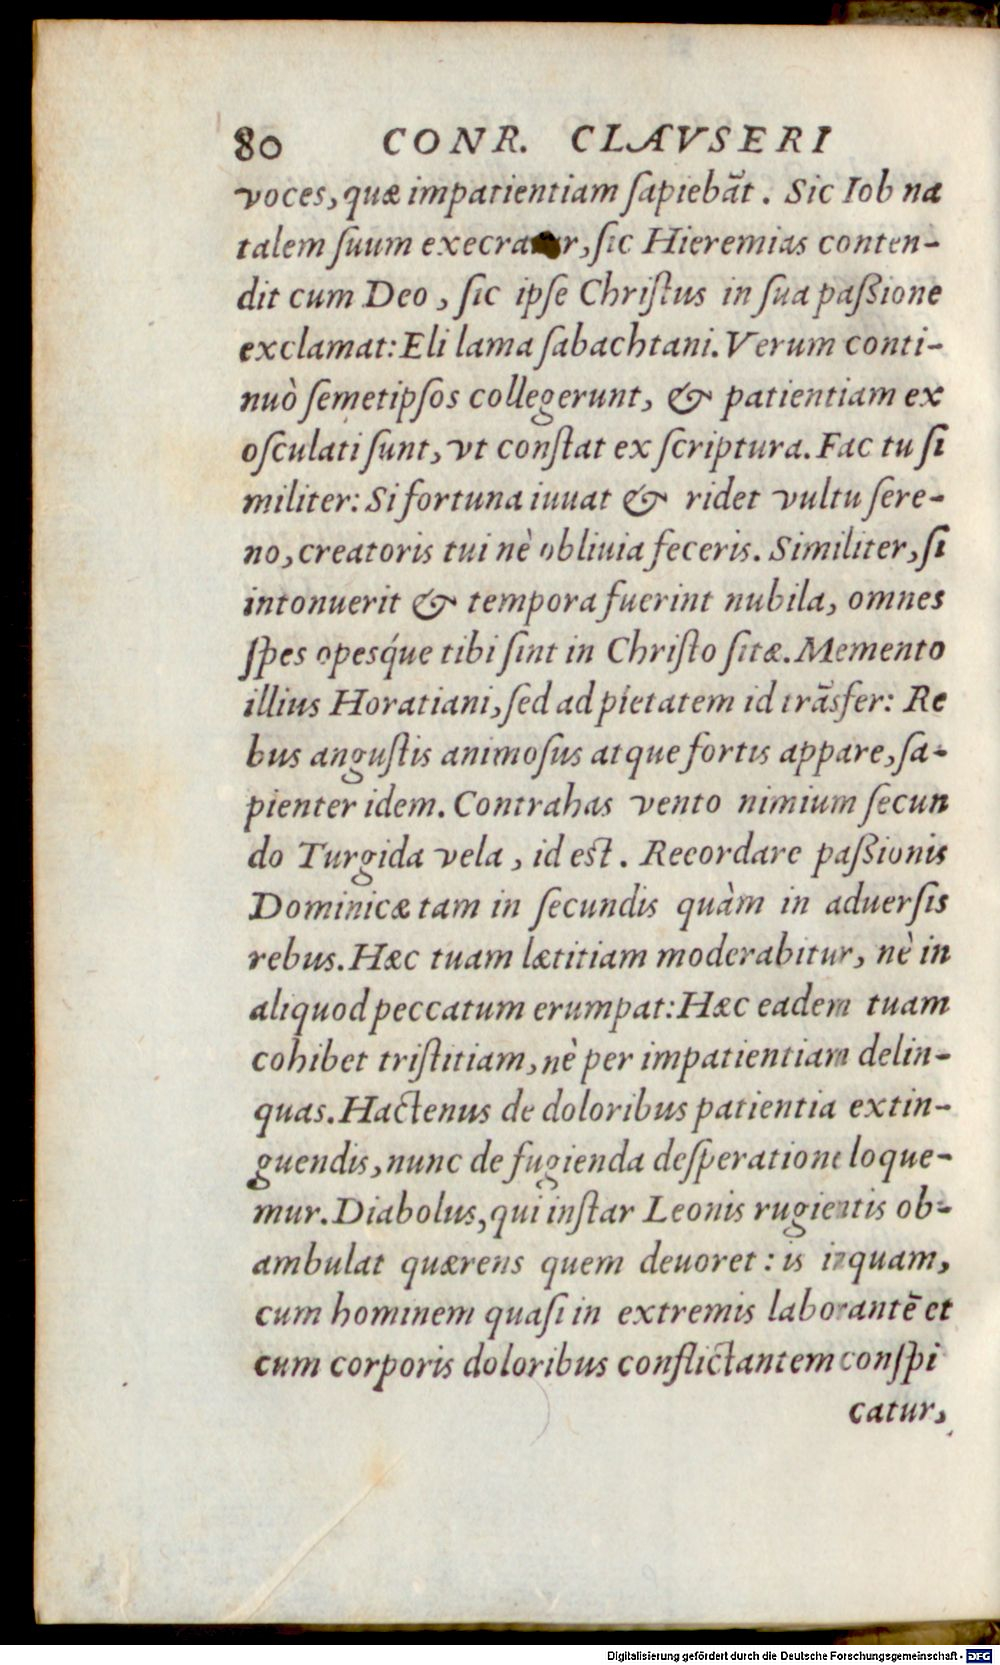 80 CONR. CLAVSERI
voces, quæ impatientiam ſapiebãt. Sic Iob na
talem ſuum ſic Hieremias conten-
dit cum Deo, ſic ipſe Chriſtus in ſua paßione
exclamat: Eli lama ſabachtani. Verum conti-
nuò ſemetipſos collegerunt, & patientiam ex
oſculati ſunt, vt conſtat ex ſcriptura. Fac tu ſi
militer: Si fortuna iuuat & ridet vultu ſere-
no, creatoris tui nè obliuia feceris. Similiter, ſi
intonuerit & tempora fuerint nubila, omnes
ſpes opesq́ue tibi ſint in Chriſto ſitæ. Memento
illius Horatiani, ſed ad pietatem id trãsfer: Re
bus anguſtis animoſus atque fortis appare, ſa-
pienter idem. Contrahas vento nimium ſecun
do Turgida vela, id eſt. Recordare paßionis
Dominicæ tam in ſecundis quàm in aduerſis
rebus. Hæc tuam lætitiam moderabitur, nè in
aliquod peccatum erumpat: Hæc eadem tuam
cohibet triſtitiam, nè per impatientiam delin-
quas. Hactenus de doloribus patientia extin-
guendis, nunc de fugienda deſperatione loque-
mur. Diabolus, qui inſtar Leonis rugientis ob-
ambulat quærens quem deuoret: is inquam,
cum hominem quaſi in extremis laborantē et
cum corporis doloribus conflictantem conſpi
catur,
Digitalisierung gefördert durch die Deutsche Forschungsgemeinschaft - DFG